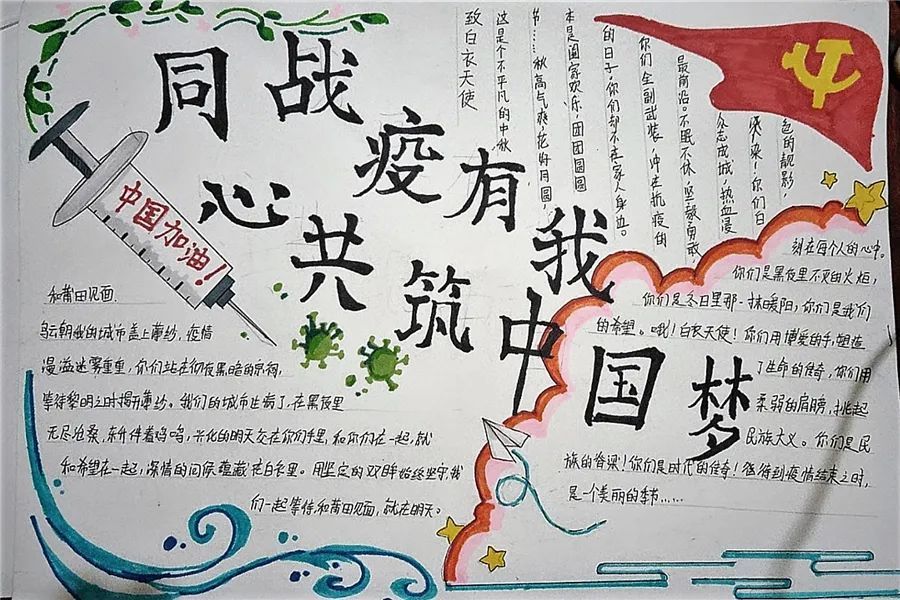 同心战疫有我
共筑中国梦
中国加油!
致白衣天使
这是个不平凡的中秋
节……秋高气爽,花好月圆,
本是阖家欢乐,团团圆圆
的日子,你们却不在家人身边。
你们全副武装,冲在抗疫的
最前沿。不眠不休,坚毅勇敢,
众志成城,热血漫
你们白
色的靓影,
刻在每个人的心中。
你们是黑夜里不灭的火炬,
你们是冬日里那一抹暖阳,你们是我们
的希望。哦!白衣天使!你们用博爱的手,塑造
了生命的传奇,你们用
柔弱的肩膀,挑起
民族大义。你们是民
族的脊梁!你们是时代的传奇!待到疫情结束之时,
是一个美丽的季节……
和莆田见面.
乌云朝我的城市盖上薄纱,疫情
漫溢迷雾重重,你们站在彻夜黑暗的
等待黎明之时揭开薄纱。我们的城市生病了,在黑夜里
无尽沧桑,兴化的明天交在你们手里,和你们在一起,就
和希望在一起,深情的问候蕴藏在白衣里。用坚定的双眸始终坚守,我
们一起等待,和莆田见面,就在明天。